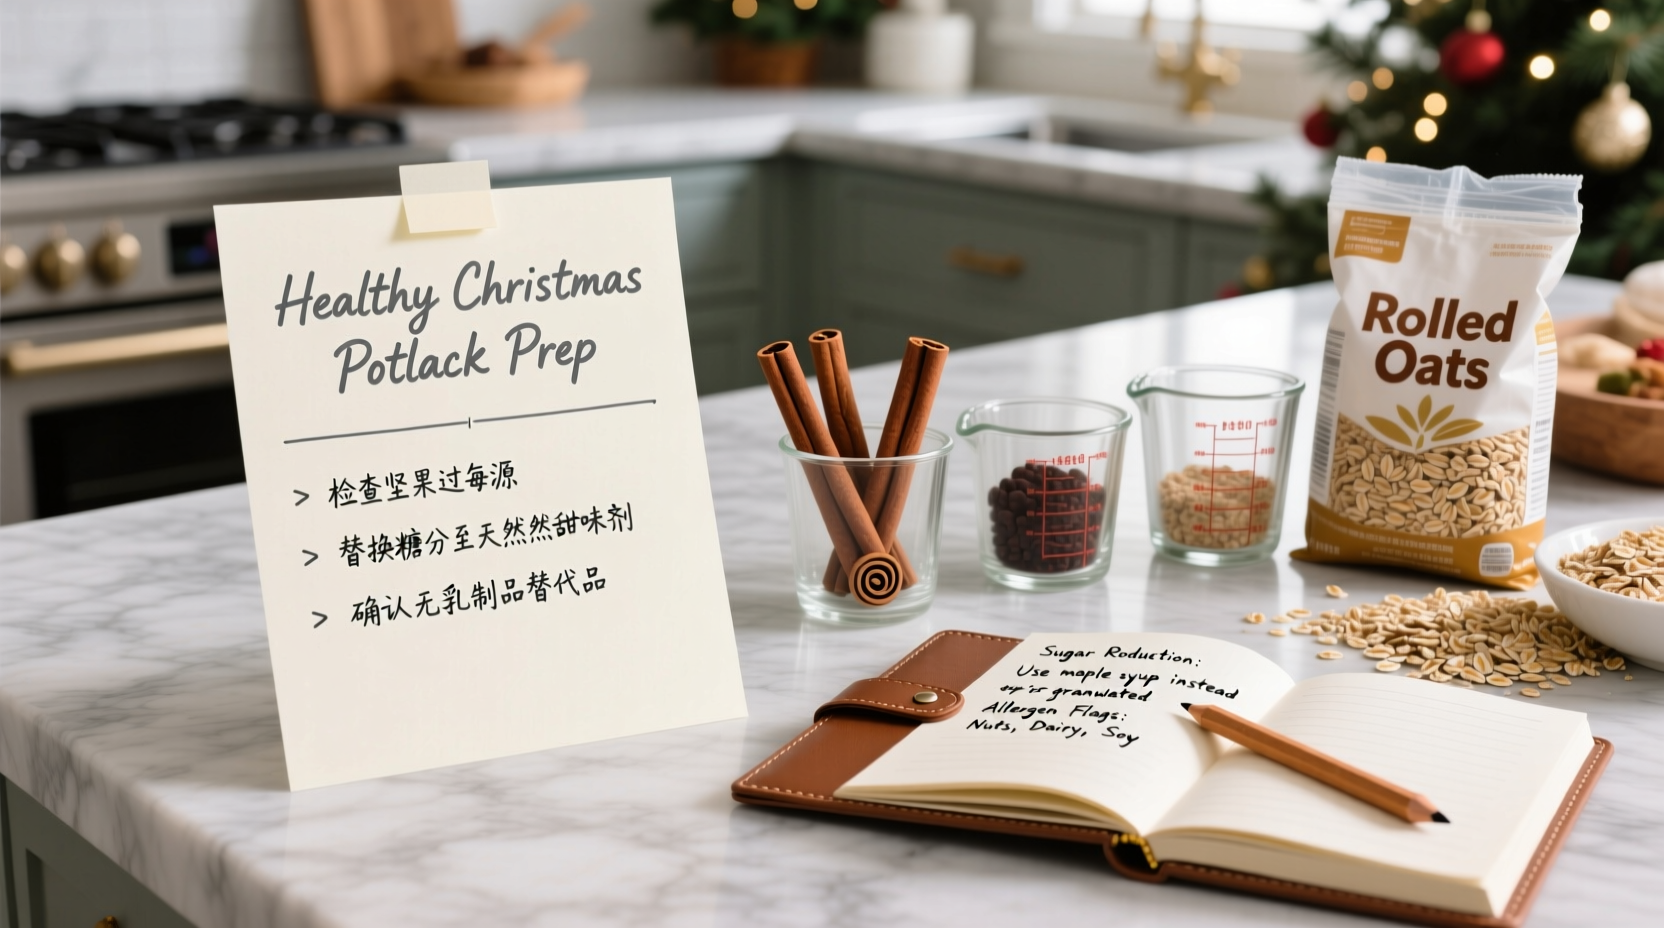 Healthy Christmas
Potlack Prep
> 检查坚果过每源
> 替换糖分至天然然甜味剂
> 确认无乳制品替代品
Rolled
Oats
Sugar Roduction:
Use maple syup instead
granwated
Allergen Flags:
Nuts, Dairy, Soy